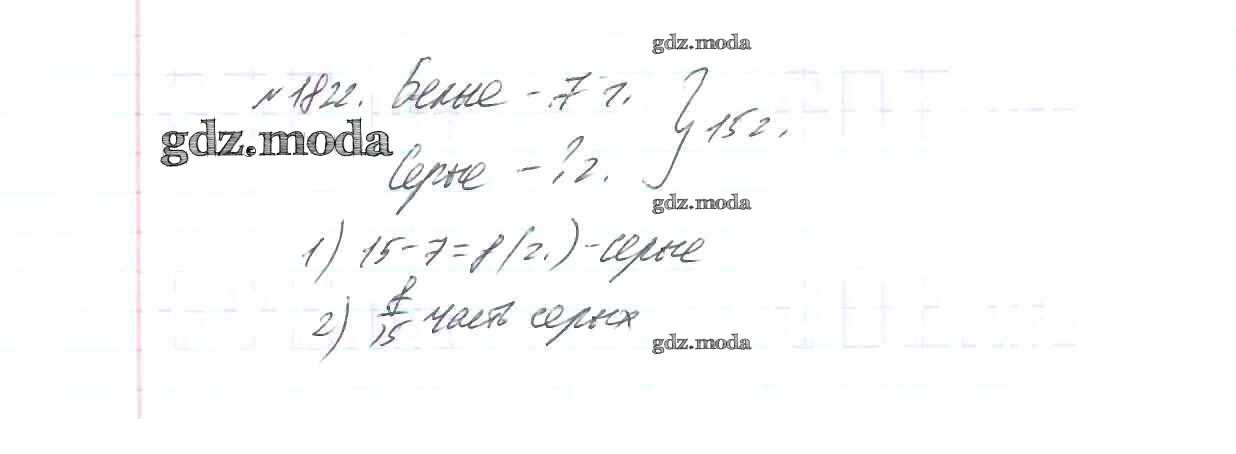 gdz.moda
№ 1822. Белые - 7 г. } 15 г.
gdz.moda
Серые - ? г.
gdz.moda
1) 15 - 7 = 8 (г.) - серые
2) 8/15 часть серых
gdz.moda